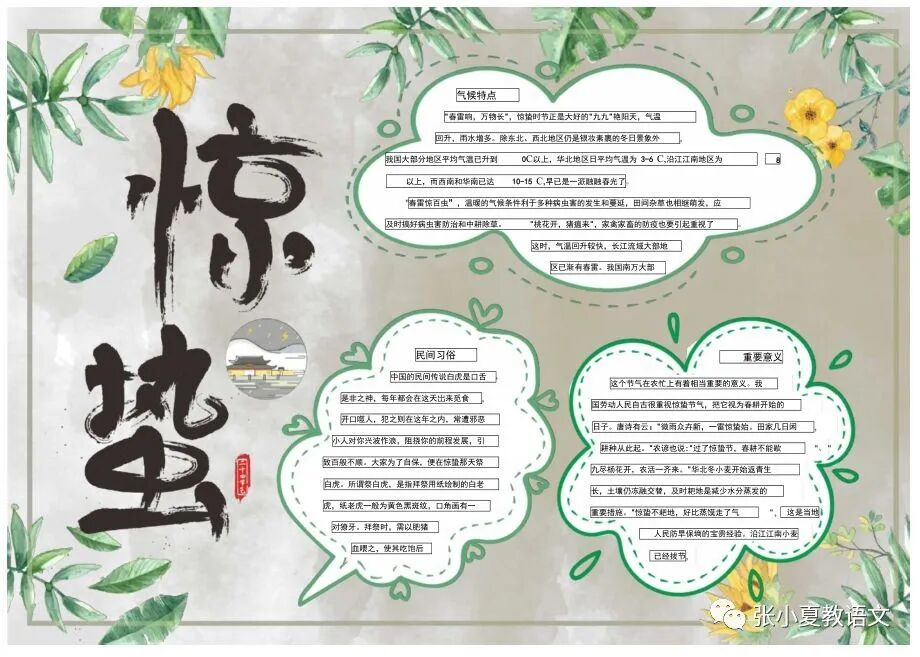 惊
蛰
二十四节气
气候特点
"春雷响,万物长",惊蛰时节正是大好的"九九"艳阳天,气温
回升,雨水增多。除东北、西北地区仍是银妆素裹的冬日景象外
我国大部分地区平均气温已升到 0C以上,华北地区日平均气温为 3-6 C,沿江江南地区为 8
以上,而西南和华南已达 10-15 C,早已是一派融融春光了。
"春雷惊百虫",温暖的气候条件利于多种病虫害的发生和蔓延,田间杂草也相继萌发,应
及时搞好病虫害防治和中耕除草。 "桃花开,猪瘟来",家禽家畜的防疫也要引起重视了
这时,气温回升较快,长江流域大部地
区已渐有春雷。我国南万大部
民间习俗
中国的民间传说白虎是口舌 、
是非之神,每年都会在这天出来觅食 ,
开口噬人,犯之则在这年之内,常遭邪恶
小人对你兴波作浪,阻挠你的前程发展,引
致百般不顺。大家为了自保,便在惊蛰那天祭
白虎。所谓祭白虎,是指拜祭用纸绘制的白老
虎,纸老虎一般为黄色黑斑纹,口角画有一
对獠牙。拜祭时,需以肥猪
血喂之,使其吃饱后
重要意义
这个节气在农忙上有着相当重要的意义。我
国劳动人民自古很重视惊蛰节气,把它视为春耕开始的
日子。唐诗有云:"微雨众卉新,一雷惊蛰始。田家几日闲 ,
耕种从此起。"农谚也说:"过了惊蛰节,春耕不能歇 "、"
九尽杨花开,农活一齐来。"华北冬小麦开始返青生
长,土壤仍冻融交替,及时耙地是减少水分蒸发的
重要措施。"惊蛰不耙地,好比蒸馍走了气 ", 这是当地
人民防旱保墒的宝贵经验。沿江江南小麦
已经拔节,
张小夏教语文